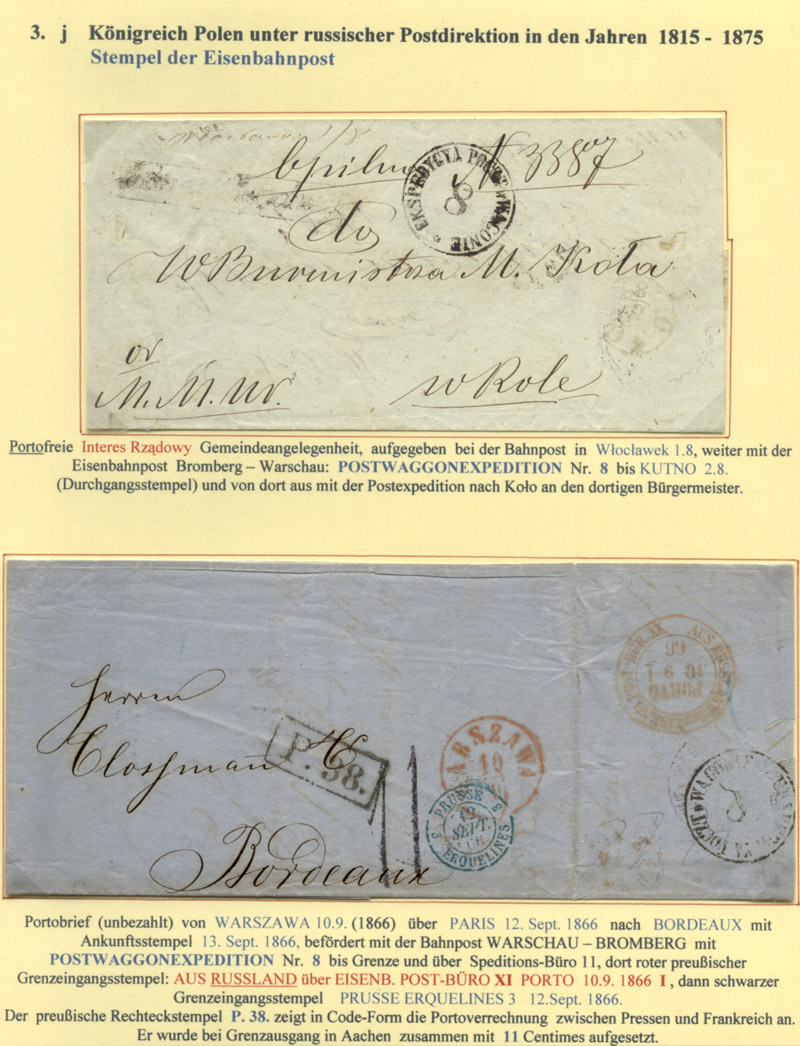 3. j Königreich Polen unter russischer Postdirektion in den Jahren 1815 - 1875
Stempel der Eisenbahnpost
N 3387
EKSPEDYCYA POCZT. WAGONIE
8
do
W Burmistrza M. Koła
w Kole
Portofreie Interes Rządowy Gemeindeangelegenheit, aufgegeben bei der Bahnpost in Włocławek 1.8, weiter mit der
Eisenbahnpost Bromberg – Warschau: POSTWAGGONEXPEDITION Nr. 8 bis KUTNO 2.8.
(Durchgangsstempel) und von dort aus mit der Postexpedition nach Koło an den dortigen Bürgermeister.
AUS RUSS
POST-BÜR. XI
PORTO
10 9 I
66
Herren
Clossman & Co
P. 38.
11
WARSZAWA
10
PRUSSE
3 3
12
SEPT.
66
ERQUELINES
8
Bordeaux
Portobrief (unbezahlt) von WARSZAWA 10.9. (1866) über PARIS 12. Sept. 1866 nach BORDEAUX mit
Ankunftsstempel 13. Sept. 1866, befördert mit der Bahnpost WARSCHAU – BROMBERG mit
POSTWAGGONEXPEDITION Nr. 8 bis Grenze und über Speditions-Büro 11, dort roter preußischer
Grenzeingangsstempel: AUS RUSSLAND über EISENB. POST-BÜRO XI PORTO 10.9. 1866 I, dann schwarzer
Grenzeingangsstempel PRUSSE ERQUELINES 3 12.Sept. 1866.
Der preußische Rechteckstempel P. 38. zeigt in Code-Form die Portoverrechnung zwischen Pressen und Frankreich an.
Er wurde bei Grenzausgang in Aachen zusammen mit 11 Centimes aufgesetzt.